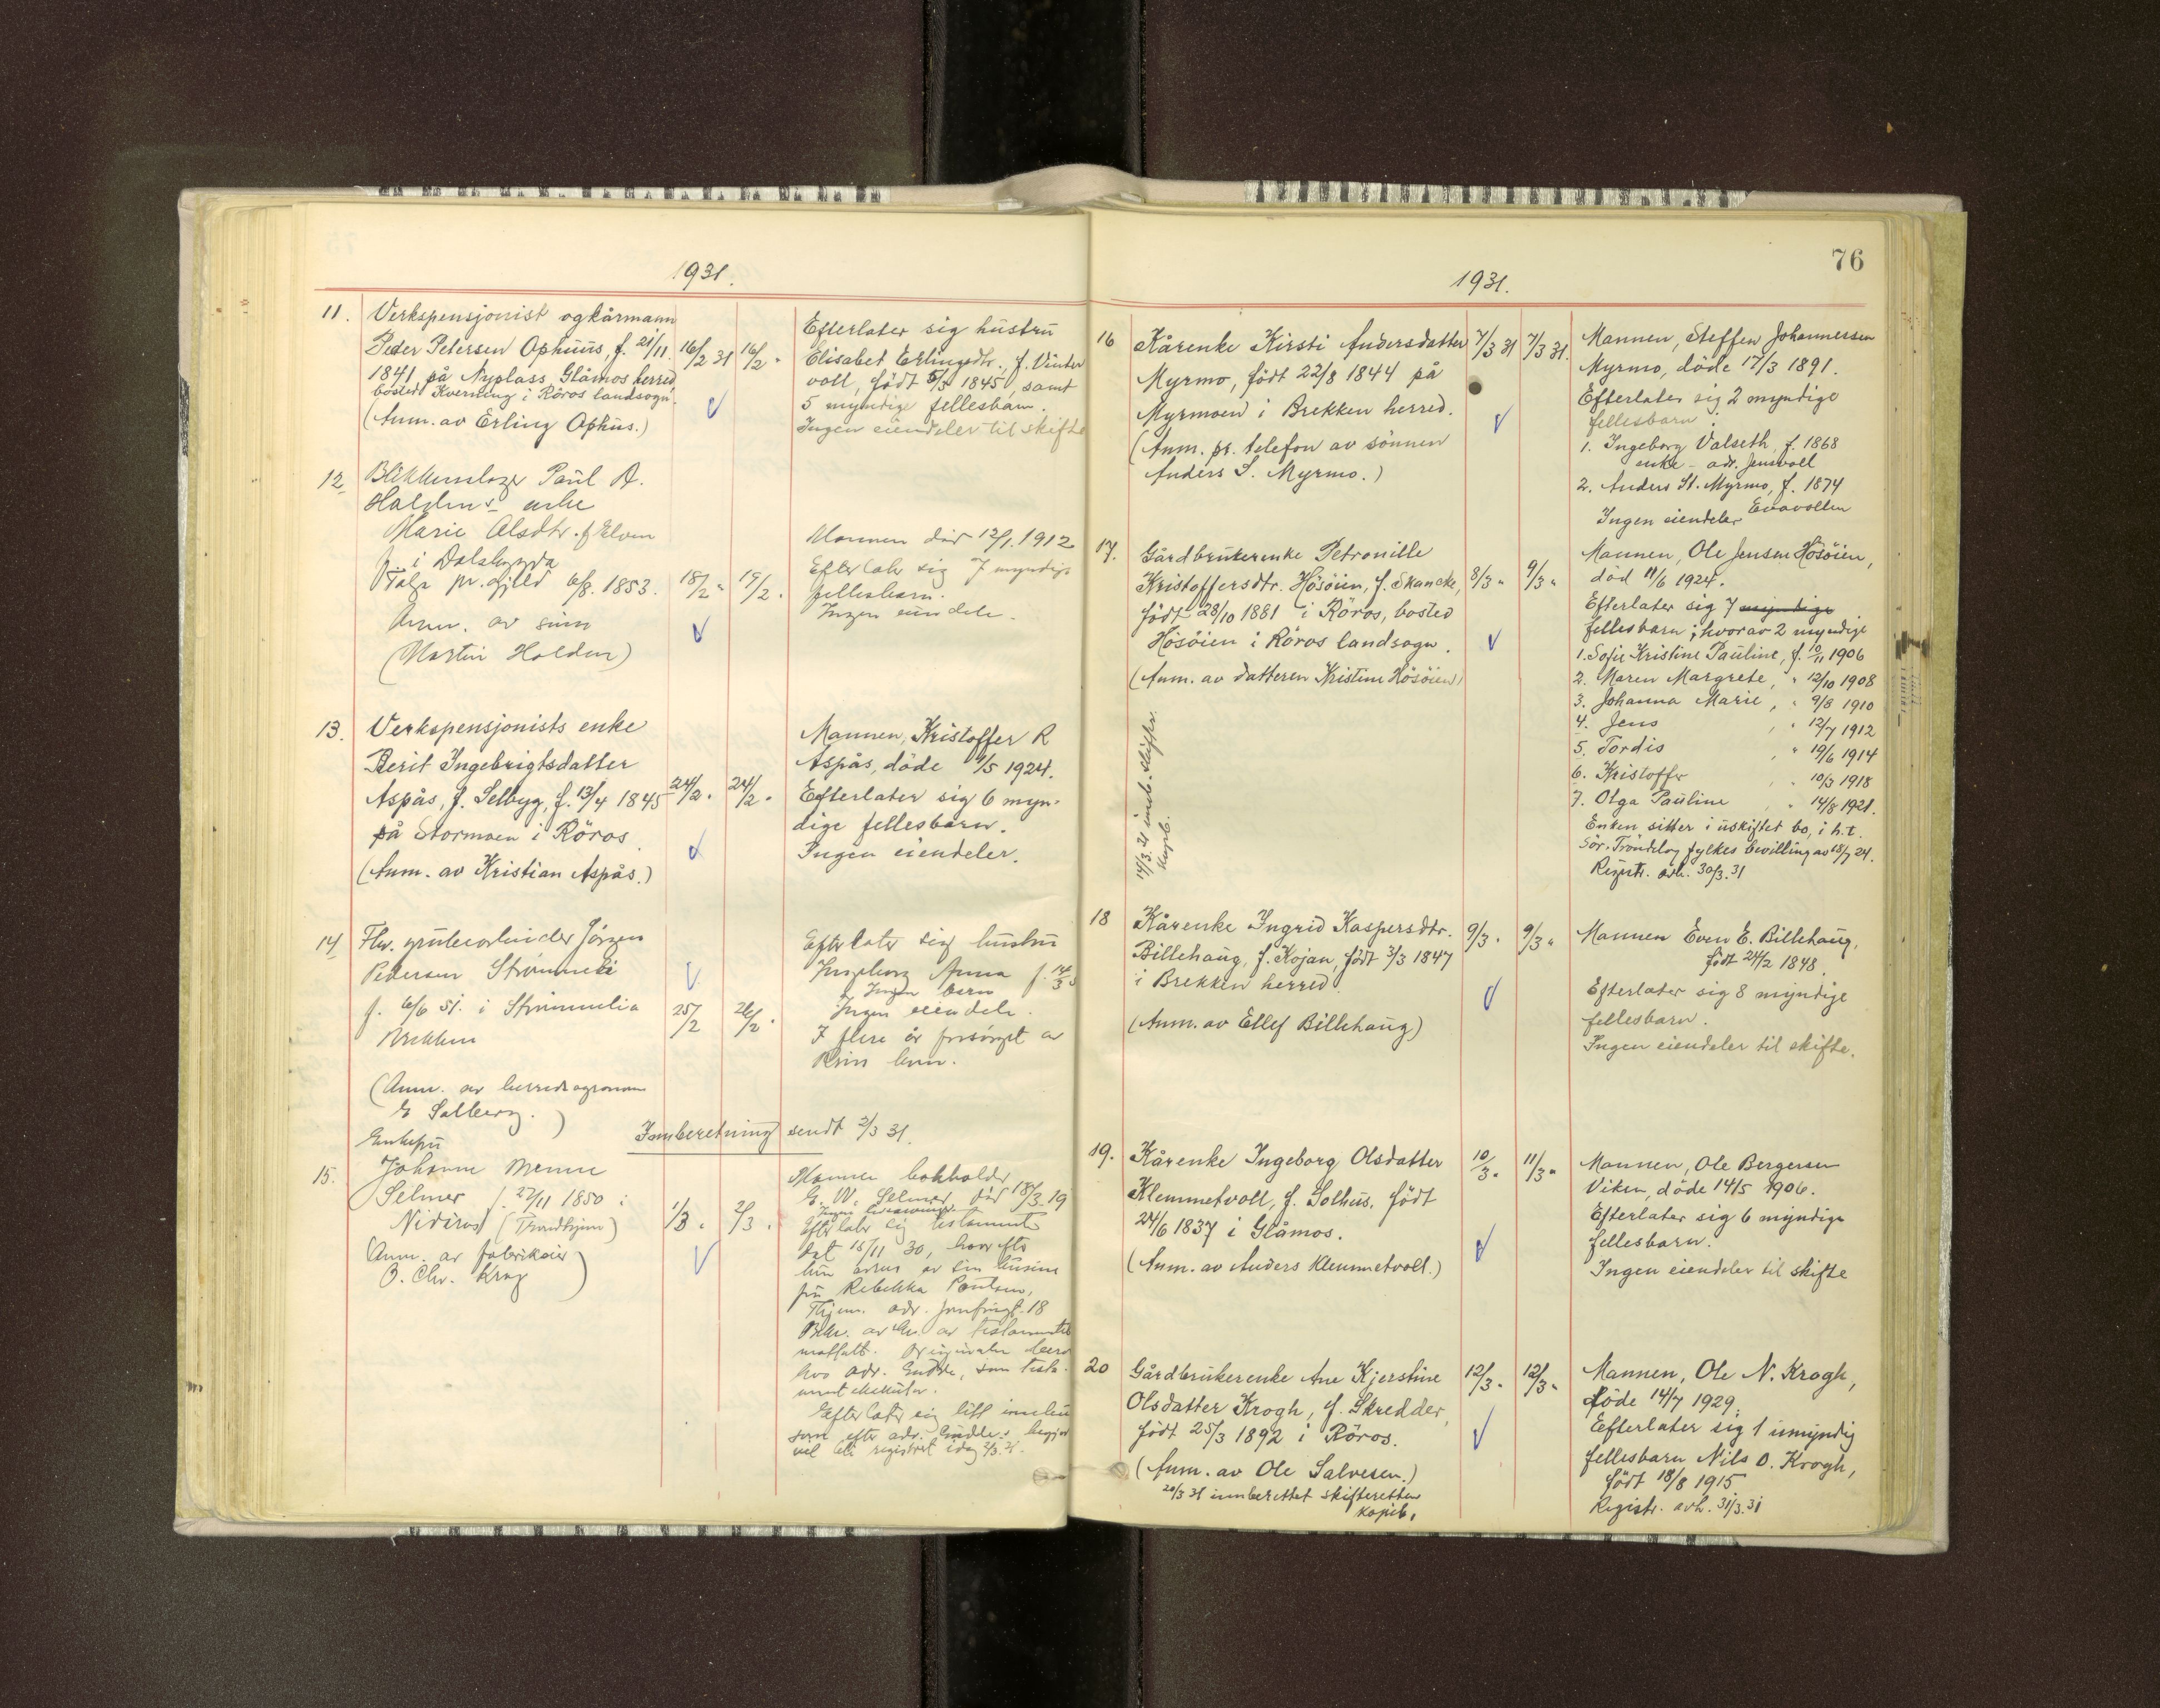 1931.
11. Verkspensjonist og kårmann
Peder Petersen Ophuus, f. 21/11
1841 på Nyplass Glåmos herred,
bosted Kverneng i Röros landsogn.
(Anm. av Erling Ophus.)
16/2 31 16/2 "
Efterlater sig hustru
Elisabet Erlingsdtr., f. Vinter
voll, født 5/3 1845, samt
5 myndige fellesbarn.
Ingen eiendeler til skifte
12. Blikkenslager Paul A.
Holdens enke
Marie Olsdtr. f. Elven
f. i Dalsbygda
Tolga pr.gjeld 6/8. 1853.
Anm. av sønn
(Martin Holden)
18/2 " 19/2 "
Mannen död 12/1. 1912
Efterlater sig 7 myndige
fellesbarn.
Ingen eiendele.
13. Verkspensjonists enke
Berit Ingebrigtsdatter
Aspås, f. Selbyg, f. 13/4 1845
på Stormoen i Röros.
(Anm. av Kristian Aspås.)
24/2 " 24/2 "
Mannen, Kristoffer R
Aspås, döde 9/5 1924.
Efterlater sig 6 myn-
dige fellesbarn.
Ingen eiendeler.
14 Fhv. grubearbeider Jörgen
Pedersen Strömmeli
f. 6/6 51. i Strömmelia
Brekken
(Anm. av herredsagronom
E Solberg.)
25/2 26/2 "
Efterlater sig hustru
Ingeborg Anna f. 14/3
Ingen barn
Ingen eiendele.
I flere år forsörget av
Innberetning sendt 2/3 31.
15. Enkefru
Johanne
Selmer f. 27/11 1850 i
Nidaros (Trondhjem)
Anm. av fabrikeier
O. Chr. Krog
1/3 " 2/3 "
Mannen bokholder
G. W. Selmer, död 18/3 19
Ingen livsarvinger
Efterlater sig testamente
dat 18/11 30, hvorefter
hun arves av sin kusine
fru Rebekka Poulsen,
Thjem. adr. Jomfrugt. 18
av testamentet
mottatt. Originalen beror
hos adv. Gudde, som testa-
ment eksekutor.
Efterlater sig litt innbu
som efter adv. Guddes begjær
vil bli registrert idag 2/3.31.
76
1931.
16 Kårenke Kirsti Andersdatter
Myrmo, født 22/8 1844 på
Myrmoen i Brekken herred.
(Anm. pr. telefon av sönnen
Anders S. Myrmo.)
7/3 31 7/3 31.
Mannen, Steffen Johannessen
Myrmo, döde 17/3 1891.
Efterlater sig 2 myndige
fellesbarn:
1. Ingeborg Valseth, f. 1868
enke - adr. Jensvoll
2. Anders St. Myrmo, f. 1874
Evavollen
Ingen eiendeler
17. Gårdbrukerenke Petronille
Kristoffersdtr. Hösöien, f. Skancke,
født 28/10 1881 i Röros, bosted
Hösöien i Röros landsogn.
(Anm. av datteren Kristine Hösöien)
14/3.31 innb. skifter.
Kopib.
8/3 " 9/3 "
Mannen, Ole Jensen Hösöien,
död 11/6 1924.
Efterlater sig 7 myndige
fellesbarn; hvorav 2 myndige
1. Sofie Kristine Pauline, f. 10/11 1906
2. Maren Margrete, " 12/10 1908
3. Johanna Marie, " 9/8 1910
4. Jens , " 12/7 1912
5. Tordis , " 19/6 1914
6. Kristoffer , " 10/3 1918
7. Olga Pauline , " 14/8 1921.
Enken sitter i uskiftet bo, i h.t.
Sör-Tröndelag fylkes bevilling av 18/7 24.
Registr. avh. 30/3.31
18 Kårenke Ingrid Kaspersdtr.
Billehaug, f. Kojan, født 3/3 1847
i Brekken herred.
(Anm. av Ellef Billehaug)
9/3 " 9/3 "
Mannen Even E. Billehaug,
født 24/2 1848.
Efterlater sig 8 myndige
fellesbarn.
Ingen eiendeler til skifte.
19. Kårenke Ingeborg Olsdatter
Klemmetvoll, f. Solhus, født
24/6 1837 i Glåmos.
(Anm. av Anders Klemmetvoll.)
10/3 " 11/3 "
Mannen, Ole Bergersen
Viken, döde 14/5 1906.
Efterlater sig 6 myndige
fellesbarn.
Ingen eiendeler til skifte
20 Gårdbrukerenke Ane Kjerstine
Olsdatter Krogh, f. Skredder,
født 25/3 1892 i Röros.
(Anm. av Ole Salvesen.)
20/3 31 innberettet skifteretten
Kopib.
12/3 " 12/3 "
Mannen, Ole N. Krogh,
döde 14/7 1929.
Efterlater sig 1 umyndig
fellesbarn Nils O. Krogh,
født 18/8 1915
Registr. avh. 31/3.31